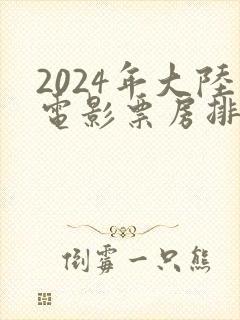 2024年大陸
電影票房排
倒霉一只熊